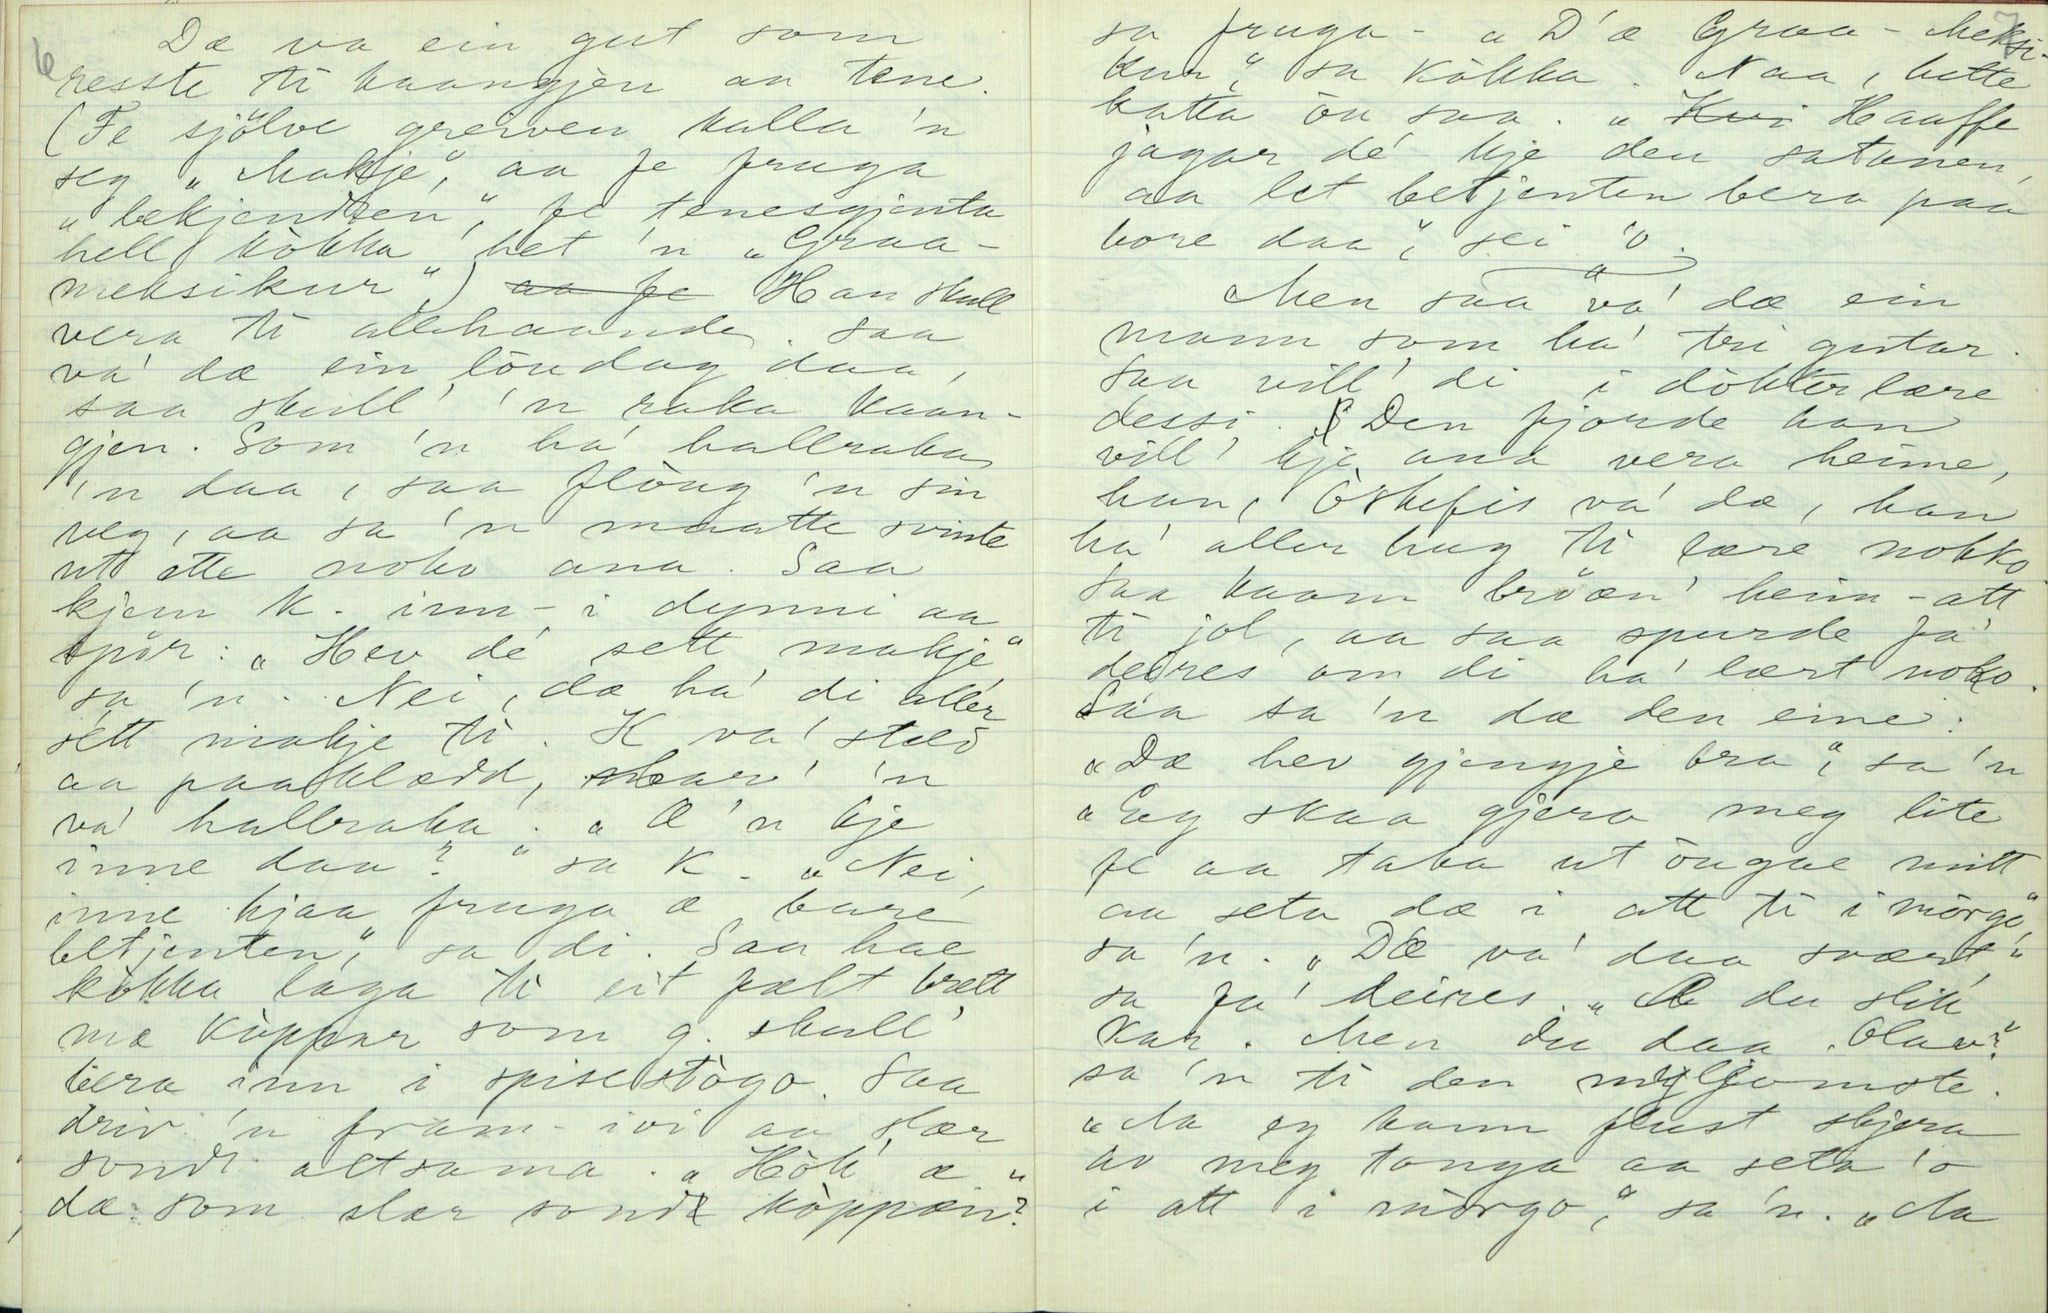 6
Dæ va ein gut som
resste ti kaangjen aa tene.
(Fe sjölve greiven kalla 'n
seg „Makje", aa fe fruga
„bekjendten", fe tenesgjenta
hell kòkka het 'n „Graa-
meksikur") aa fe Han skull
vera ti allehaande. Saa
va' dæ ein löudag daa,
saa skull' 'n raka kaan-
gjen. Som 'n ha' hallraka
'n daa, saa flòug 'n sin
veg, aa sa 'n maatte svinte
ut ette noko ana. Saa
kjem K. inn-i dynni aa
spör: „Hev dé sett makje"
sa 'n. Nei, dæ ha' di aller
sett makje ti. K va' stelt
aa paaklædd, men 'n
va' hallraka. „Æ 'n kje
inne daa?" sa K. „Nei,
inne hjaa fruga æ bare
betjenten," sa di. Saa hae
kòkka laga ti eit fælt brett
mæ kòppar som g. skull'
bera inn i spisestògo. Saa
driv 'n fram-ivi aa slær
sondt altsama. „Hòk' æ
dæ som slær sondt kòppæn?"
7
sa fruga - „D'æ Graa-Meksi-
kur", sa kòkka. Naa, hette
katta òu saa. „Kvi Haaffe
jagar dé kje den satanen,
aa let betjenten bera paa
bore daa", sei 'o.
Men saa va' dæ ein
mann som ha' tri gutar.
Saa vill' di i dòkterlære
dessi. Den fjorde han
vill' kje ana vera heime,
han, Òskefis va' dæ, han
ha' aller hug ti lære nokko
Saa kaam bröæn' heim-att
ti jol, aa saa spurde fa'
deires om di ha' lært noko.
Saa sa 'n dæ den eine:
„Dæ hev gjengje bra", sa 'n
„Eg skaa gjera meg lite
fe aa taka ut òugae mitt
aa seta dæ i att ti i mòrgo",
sa 'n. „Dæ va' daa svært"
sa fa' deires. „Æ du slik
kar. Men du daa Olav?"
sa 'n ti den mylljomste.
„Aa eg kann flust skjera
av meg tonga aa seta 'o
i att i mòrgo", sa 'n. „Aa